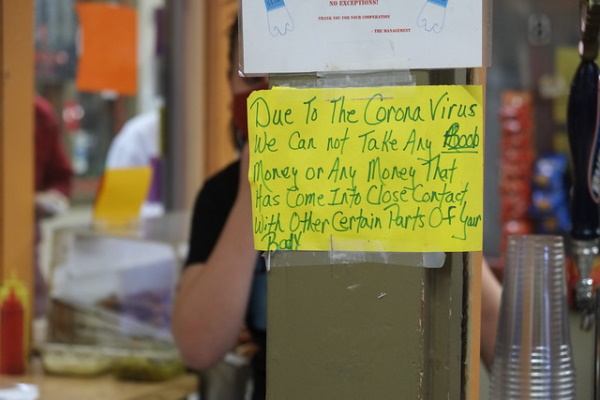 NO EXCEPTIONS!
THANK YOU FOR YOUR COOPERATION
- THE MANAGEMENT
Due To The Corona Virus
We Can not Take Any Boob
Money or Any Money That
Has Come Into Close Contact
With Other Certain Parts Of Your
Body